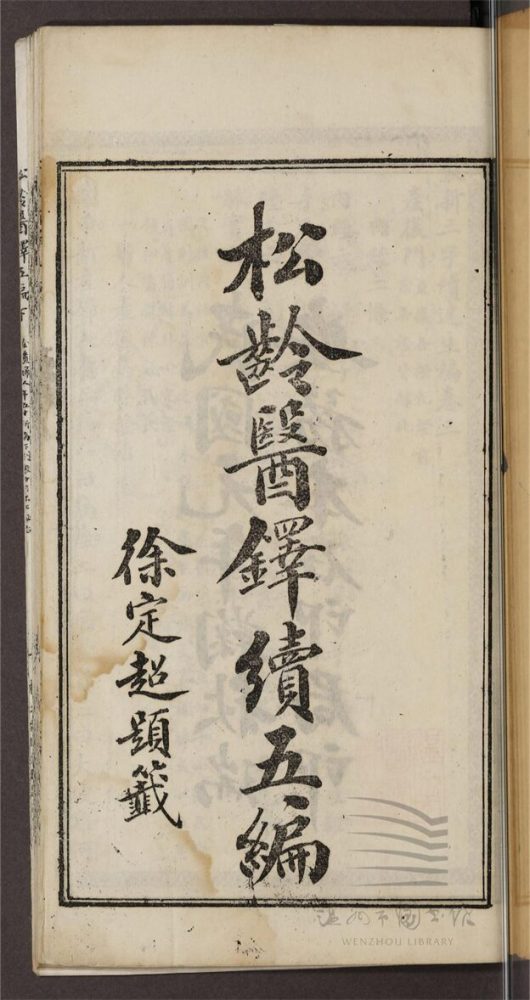 松齡醫鐸續五編
徐定超題籤
温州市图书馆
WENZHOU LIBRARY